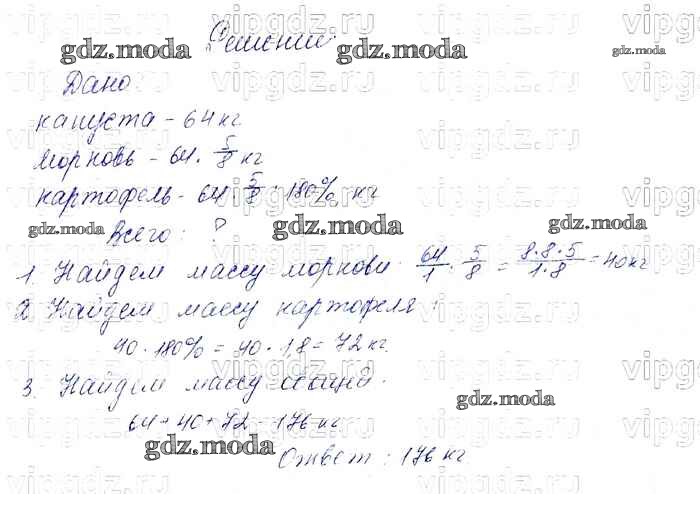 Решение.
Дано
капуста - 64 кг
морковь - 64 · 5/8 кг
картофель - 64 · 5/8 · 180% кг
Всего: ?
1. Найдем массу моркови: 64/1 · 5/8 = 8·8·5/1·8 = 40 кг
2. Найдем массу картофеля:
40 · 180% = 40 · 1,8 = 72 кг.
3. Найдем массу общей.
64 + 40 + 72 = 176 кг
Ответ: 176 кг
gdz.moda
gdz.moda
gdz.moda
gdz.moda
gdz.moda
gdz.moda
gdz.moda
gdz.moda
vipgdz.ru